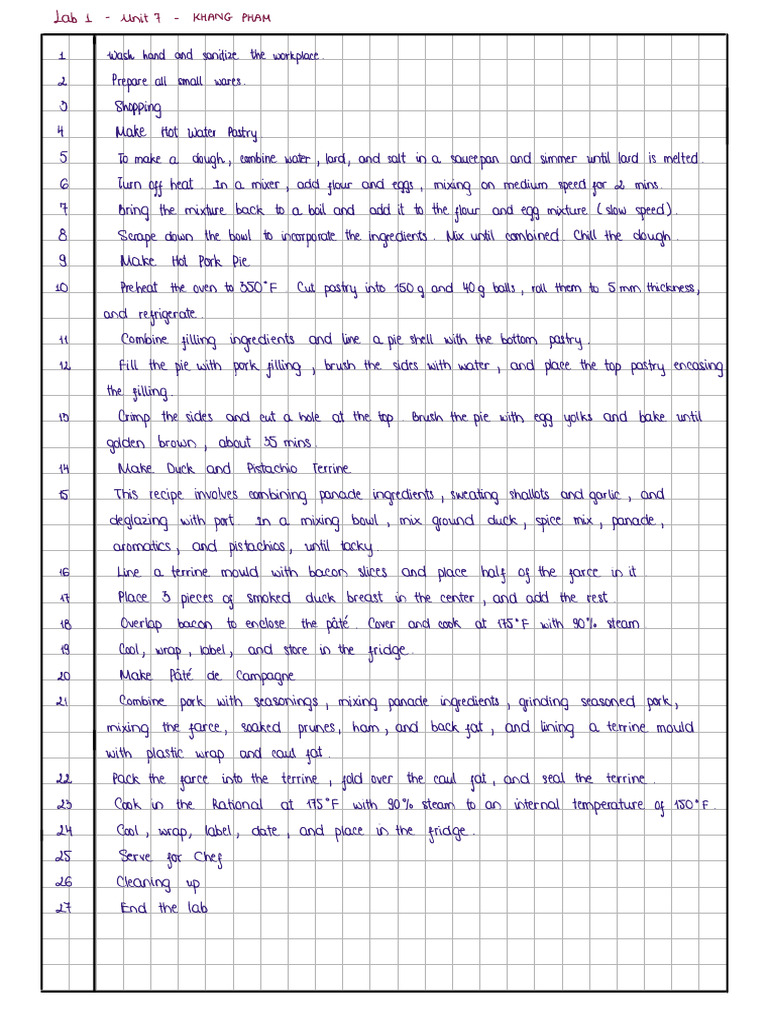 Lab 1 - Unit 7 - KHANG PHAM
1 Wash hand and sanitize the workplace.
2 Prepare all small wares.
3 Shopping
4 Make Hot Water Pastry
5 To make a dough, combine water, lard, and salt in a saucepan and simmer until lard is melted.
6 Turn off heat. In a mixer, add flour and eggs, mixing on medium speed for 2 mins.
7 Bring the mixture back to a boil and add it to the flour and egg mixture (slow speed).
8 Scrape down the bowl to incorporate the ingredients. Mix until combined. Chill the dough.
9 Make Hot Pork Pie
10 Preheat the oven to 350°F. Cut pastry into 150g and 40g balls, roll them to 5mm thickness,
and refrigerate.
11 Combine filling ingredients and line a pie shell with the bottom pastry.
12 Fill the pie with pork filling, brush the sides with water, and place the top pastry encasing
the filling.
13 Crimp the sides and cut a hole at the top. Brush the pie with egg yolks and bake until
golden brown, about 35 mins.
14 Make Duck and Pistachio Terrine
15 This recipe involves combining panade ingredients, sweating shallots and garlic, and
deglazing with port. In a mixing bowl, mix ground duck, spice mix, panade,
aromatics, and pistachios, until tacky.
16 Line a terrine mould with bacon slices and place half of the farce in it.
17 Place 3 pieces of smoked duck breast in the center, and add the rest.
18 Overlap bacon to enclose the pâté. Cover and cook at 175°F with 90% steam.
19 Cool, wrap, label, and store in the fridge.
20 Make Pâté de Campagne
21 Combine pork with seasonings, mixing panade ingredients, grinding seasoned pork,
mixing the farce, soaked prunes, ham, and back fat, and lining a terrine mould
with plastic wrap and caul fat.
22 Pack the farce into the terrine, fold over the caul fat, and seal the terrine.
23 Cook in the Rational at 175°F with 90% steam to an internal temperature of 150°F.
24 Cool, wrap, label, date, and place in the fridge.
25 Serve for Chef
26 Cleaning up
27 End the lab